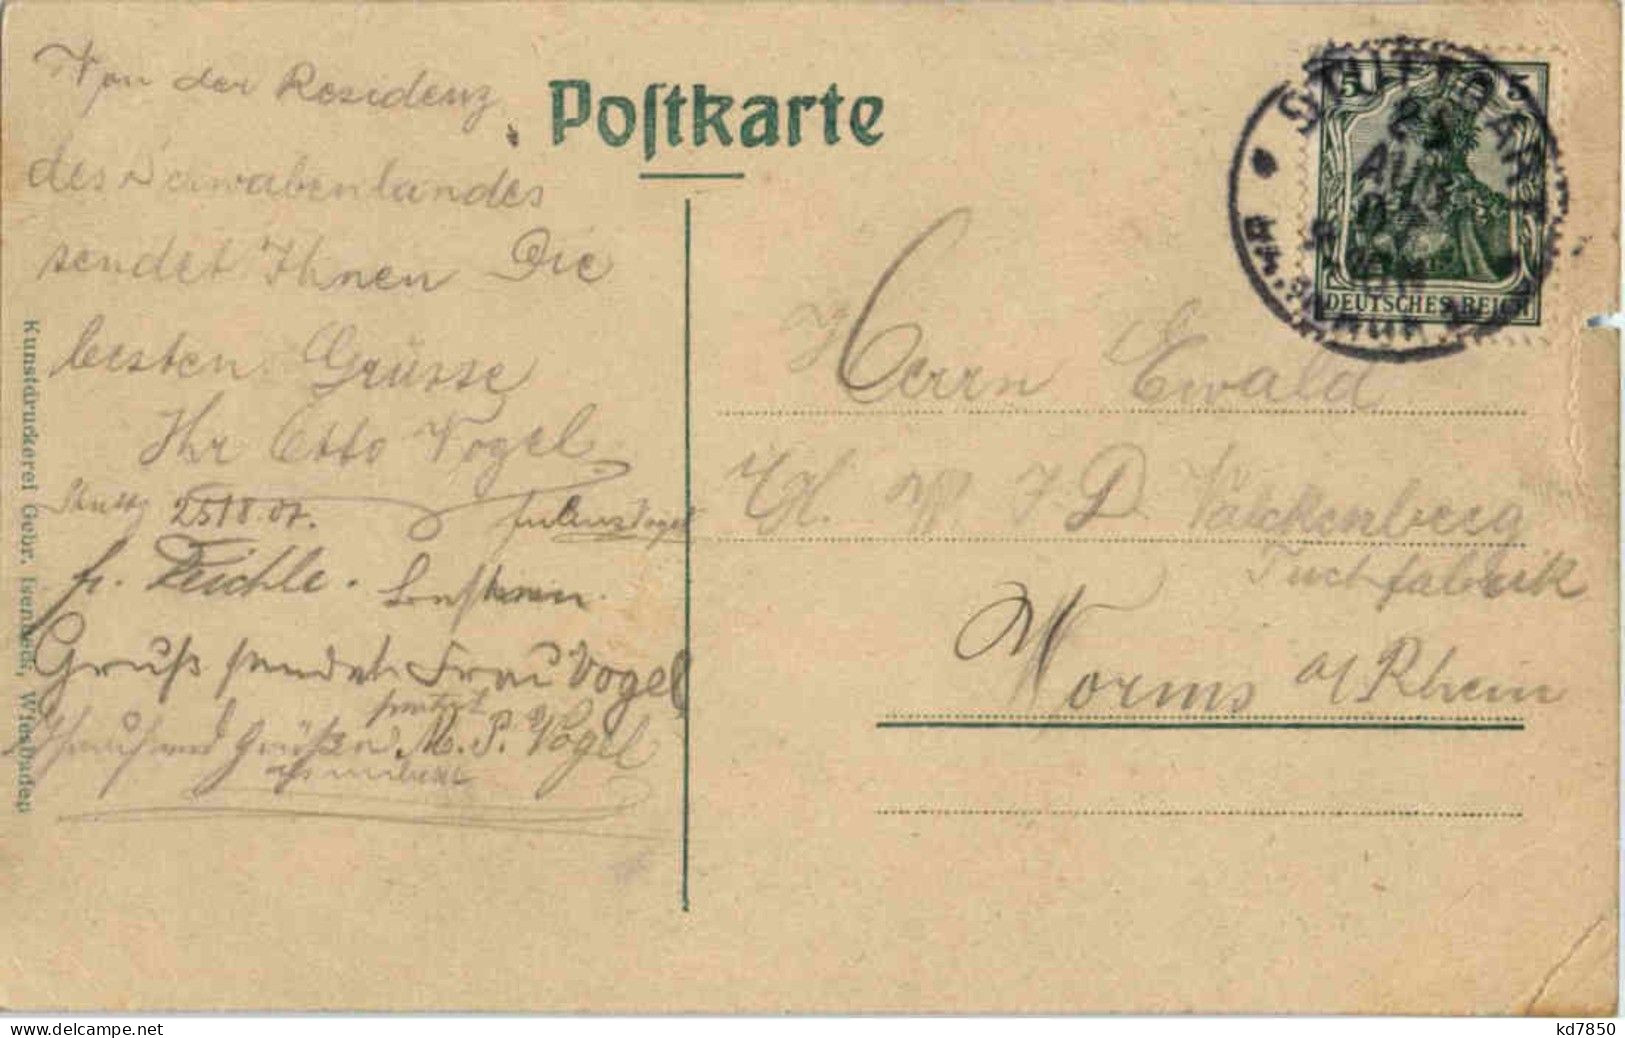 Von der Residenz
des Schwabenlandes
sendet Ihnen Die
besten Grüsse
Ihr Otto Vogel
Stuttg 25/8.07.
Julius Vogel
fr. Deichle.
Gruß sendet Frau Vogel
Grüßen M. P. Vogel
Kunstdruckerei Gebr. Isenbeck, Wiesbaden
Postkarte
STUTTGART
25
AUG
07
5 5
DEUTSCHES REICH
Herrn Ewald
J. D. Valckenberg
Tuchfabrik
Worms a/Rhein
kd7850
delcampe.net